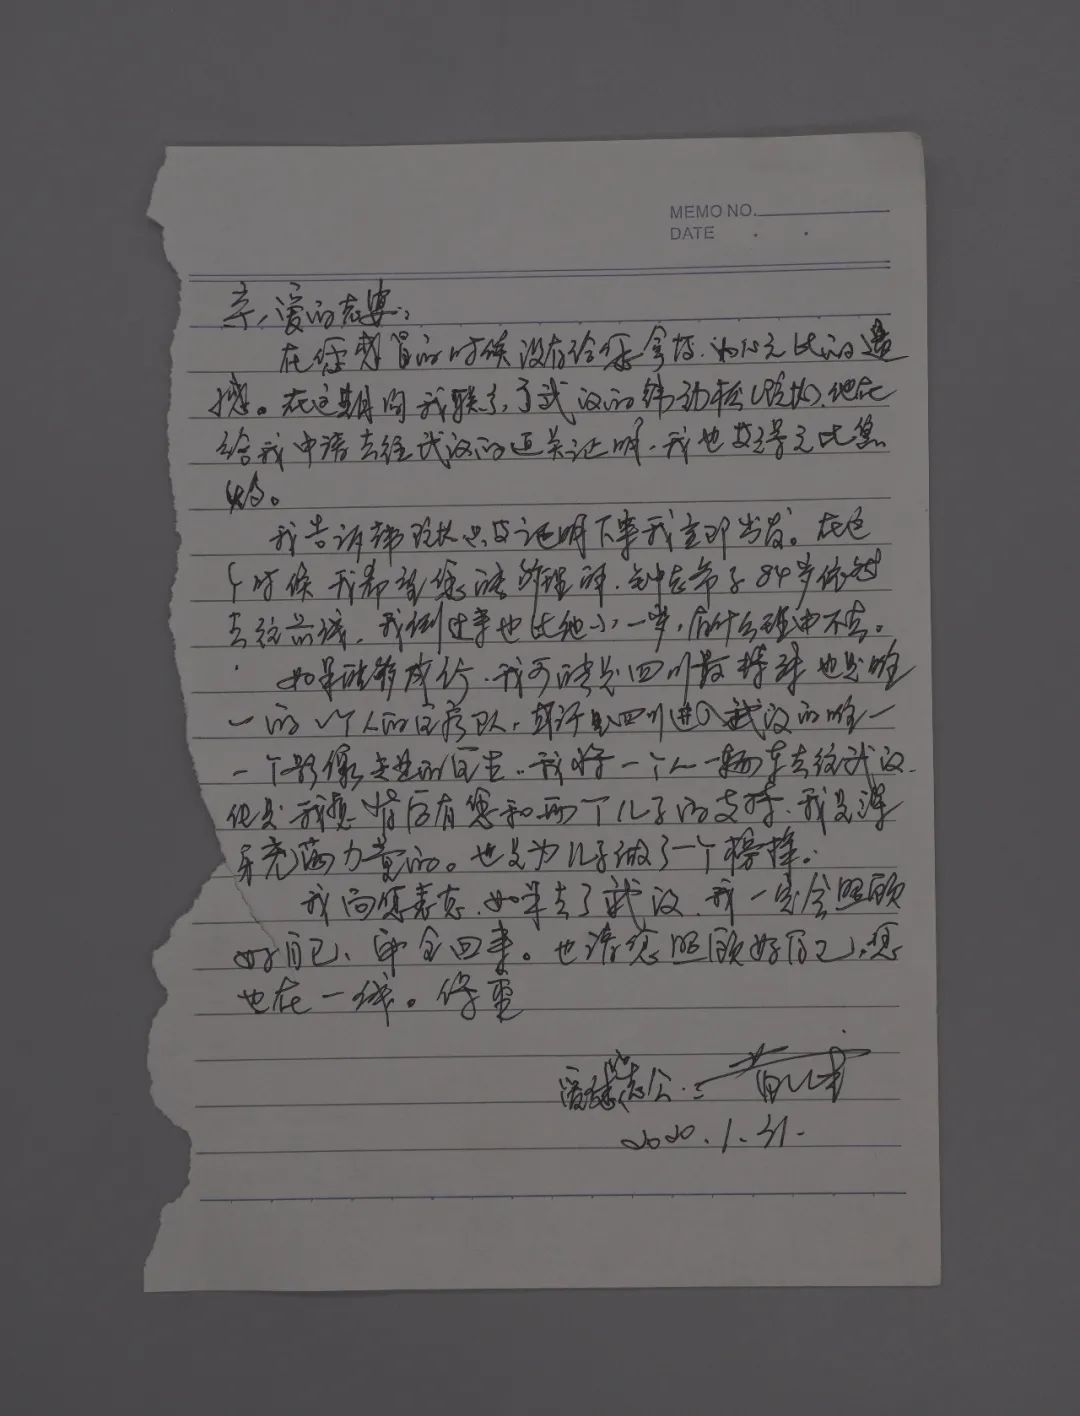 MEMO NO.
DATE . .
亲爱的老婆:
在您感冒的时候没有给您拿药,为您无比的遗
憾。在这期间我联系了武汉的韩劲松院长,他在
给我申请去往武汉的通关证明,我也变得无比焦
灼。
我告诉韩院长只要证明下来我立即出发。在这
个时候我希望您能够理解,钟老爷子84岁依然
去往前线,我倒过来也比他小一半,有什么理由不去。
如果能够成行,我可能是四川最特殊也是唯
一的1个人的医疗队,或许是四川进入武汉的唯一
一个影像专业的医生。我将一个人一辆车去往武汉,
但是我想背后有您和两个儿子的支持,我是浑
身充满力量的。也是为儿子做了一个榜样。
我向您表态,如果去了武汉,我一定会照顾
好自己,安全回来。也请您照顾好自己,您
也在一线。保重
爱您的老公:
2020.1.31.